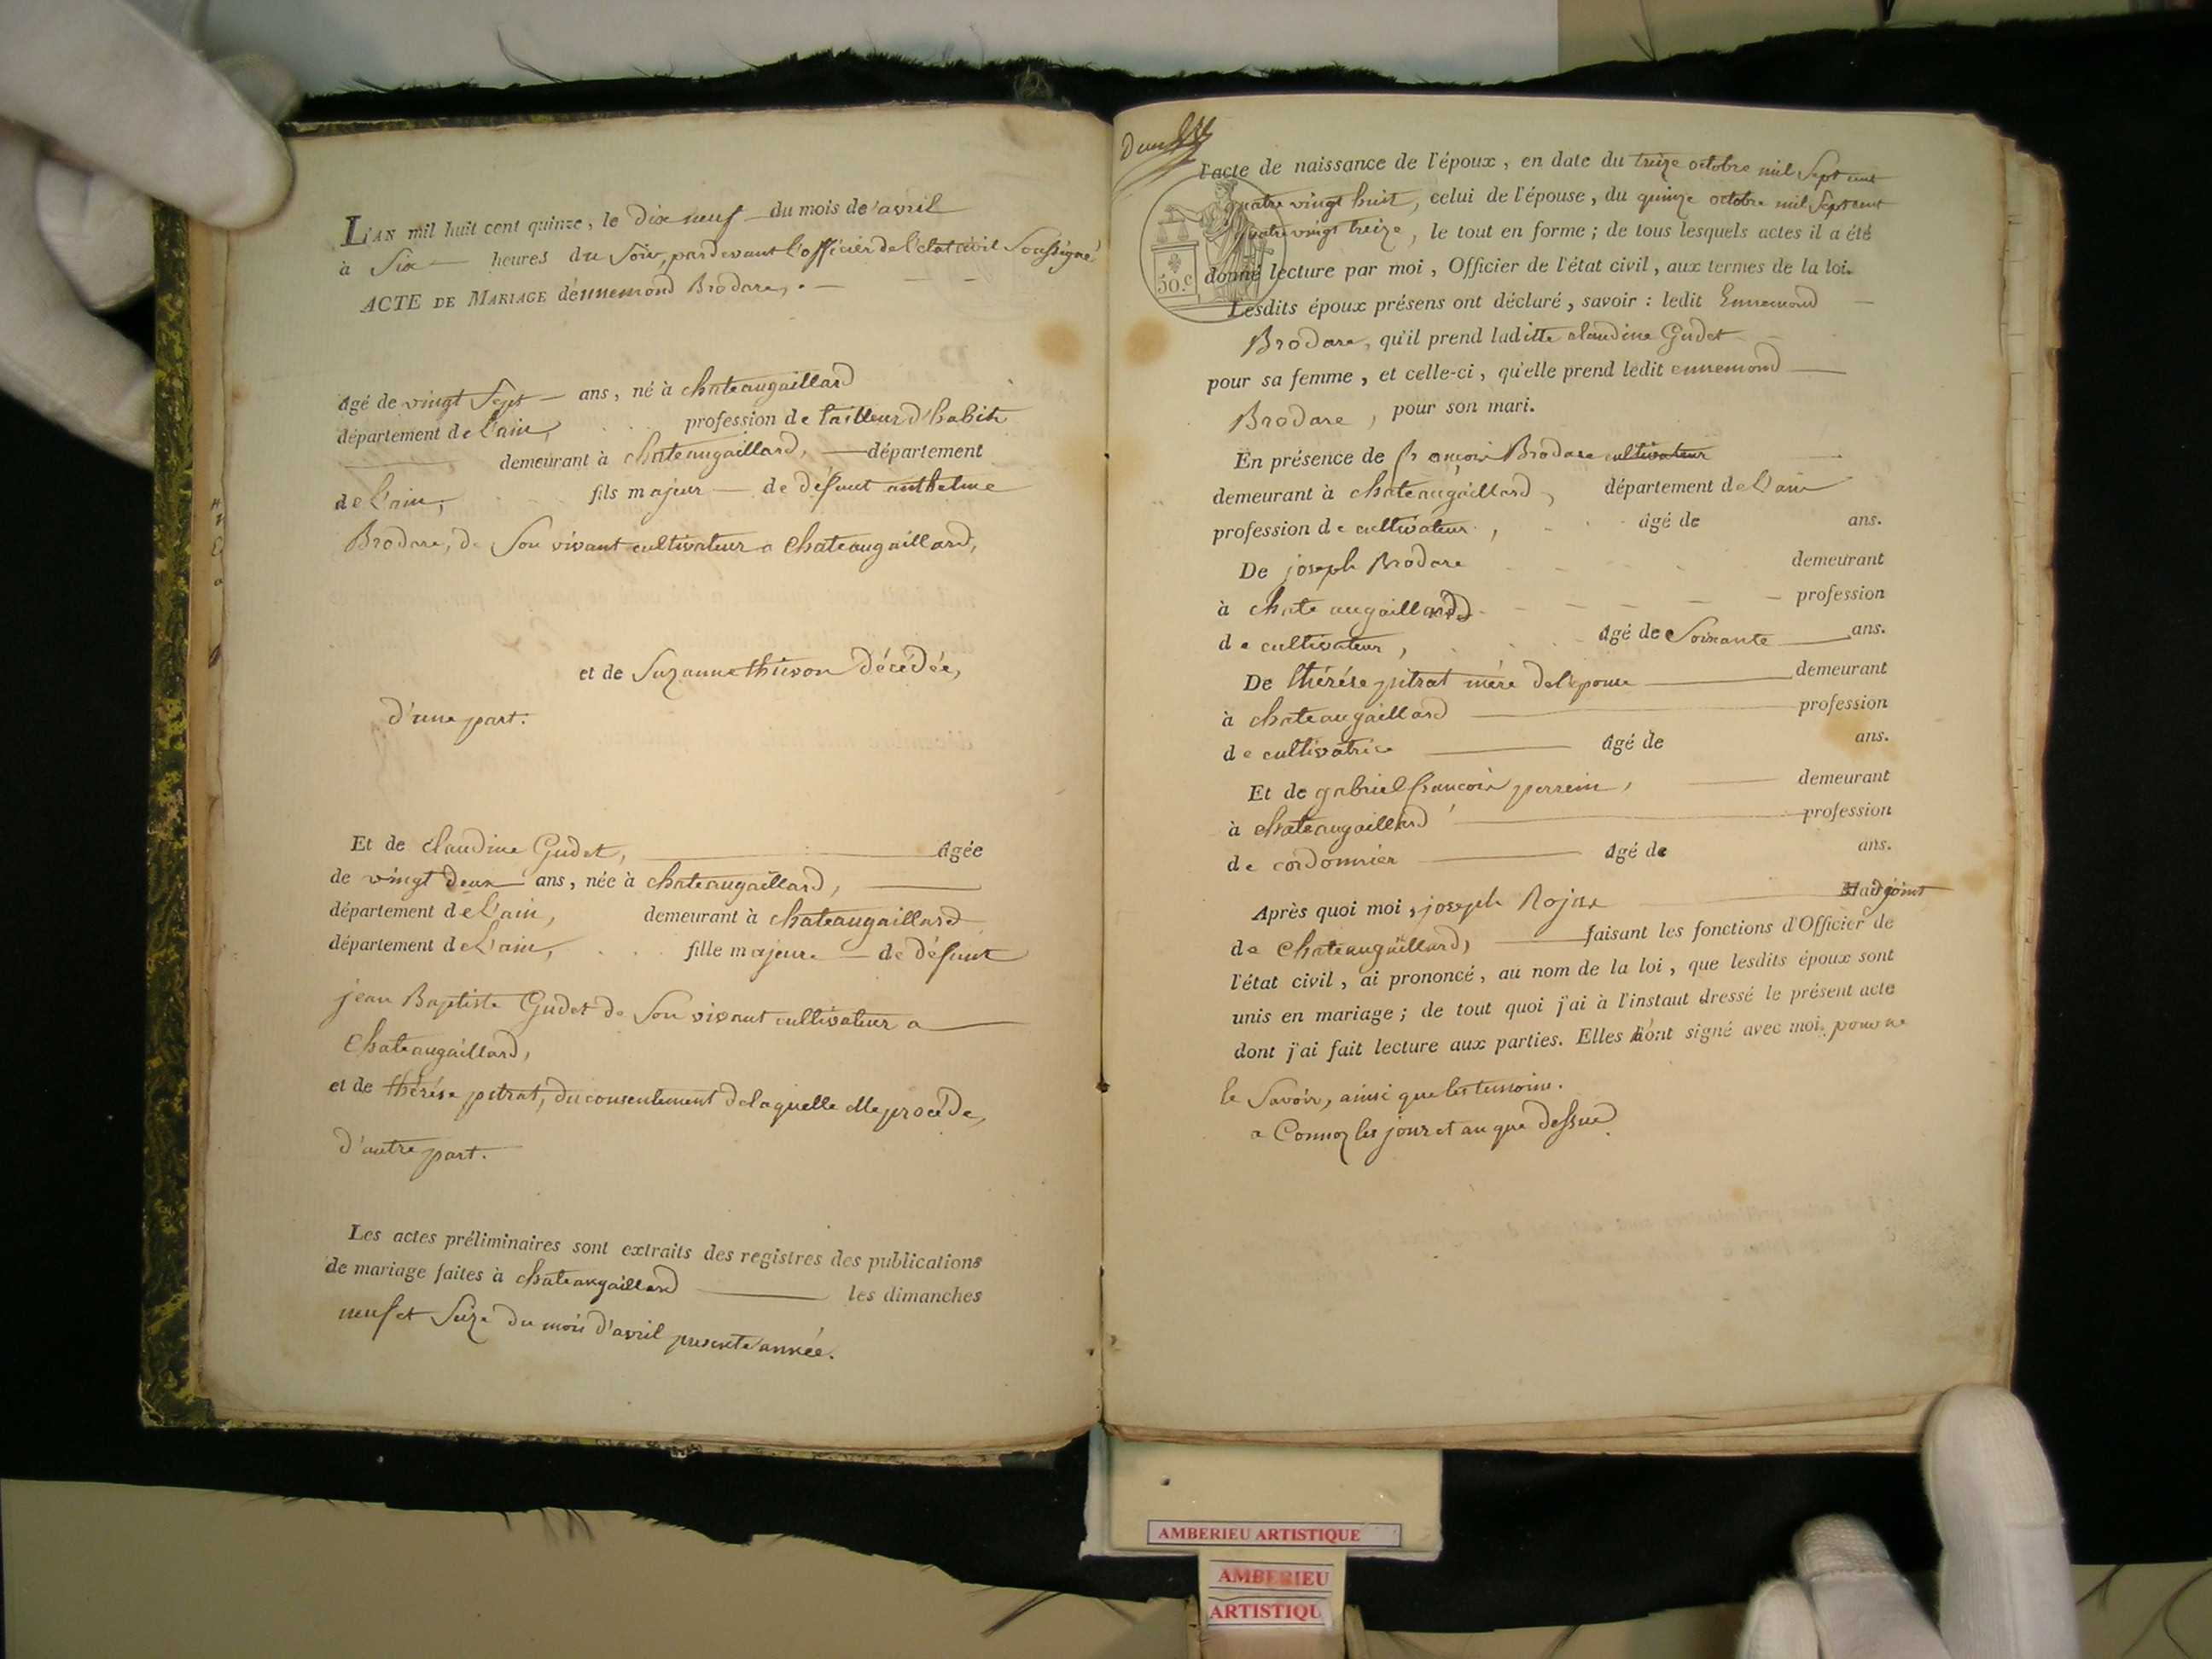 L'AN mil huit cent quinze, le dix neuf du mois de avril
à Six heures du Soir, pardevant l'officier de l'état civil Soussigné
ACTE DE MARIAGE d'ennemond Brodare,
âgé de vingt Sept ans, né à chateaugaillard
département de L'ain, profession de tailleur d'habits
demeurant à chateaugaillard, département
de L'ain, fils majeur de défunt anthelme
Brodare, de Son vivant cultivateur a Chateaugaillard,
et de Suzanne thievon décédée,
d'une part.
Et de claudine Gudet, âgée
de vingt deux ans, née à chateaugaillard,
département de L'ain, demeurant à chateaugaillard
département de L'ain, fille majeure de défunt
jean Baptiste Gudet de Son vivant cultivateur a
Chateaugaillard,
et de thérése pitrat, du consentement de laquelle elle procéde,
d'autre part.
Les actes préliminaires sont extraits des registres des publications
de mariage faites à chateaugaillard les dimanches
neuf et Seize du mois d'avril presente année.
l'acte de naissance de l'époux, en date du treize octobre mil Sept cent
quatre vingt huit, celui de l'épouse, du quinze octobre mil Sept cent
quatre vingt treize, le tout en forme; de tous lesquels actes il a été
donné lecture par moi, Officier de l'état civil, aux termes de la loi.
50.c
Lesdits époux présens ont déclaré, savoir: ledit Ennemond
Brodare, qu'il prend laditte claudine Gudet
pour sa femme, et celle-ci, qu'elle prend ledit ennemond
Brodare, pour son mari.
En présence de francois Brodare cultivateur
demeurant à chateaugaillard, département de L'ain
profession de cultivateur, âgé de ans.
De joseph Brodare demeurant
à chateaugaillard profession
de cultivateur, âgé de Soixante ans.
De thérése pitrat mére de l'epouse demeurant
à chateaugaillard profession
de cultivatrice âgé de ans.
Et de gabriel francois perrein, demeurant
à chateaugaillard profession
de cordonnier âgé de ans.
Après quoi moi, joseph Rojat adjoint
de Chateaugaillard, faisant les fonctions d'Officier de
l'état civil, ai prononcé, au nom de la loi, que lesdits époux sont
unis en mariage; de tout quoi j'ai à l'instant dressé le présent acte
dont j'ai fait lecture aux parties. Elles n'ont signé avec moi pour ne
le Savoir, ainsi que les temoins.
a Connoz les jour et an que dessus
AMBERIEU ARTISTIQUE
AMBERIEU
ARTISTIQU